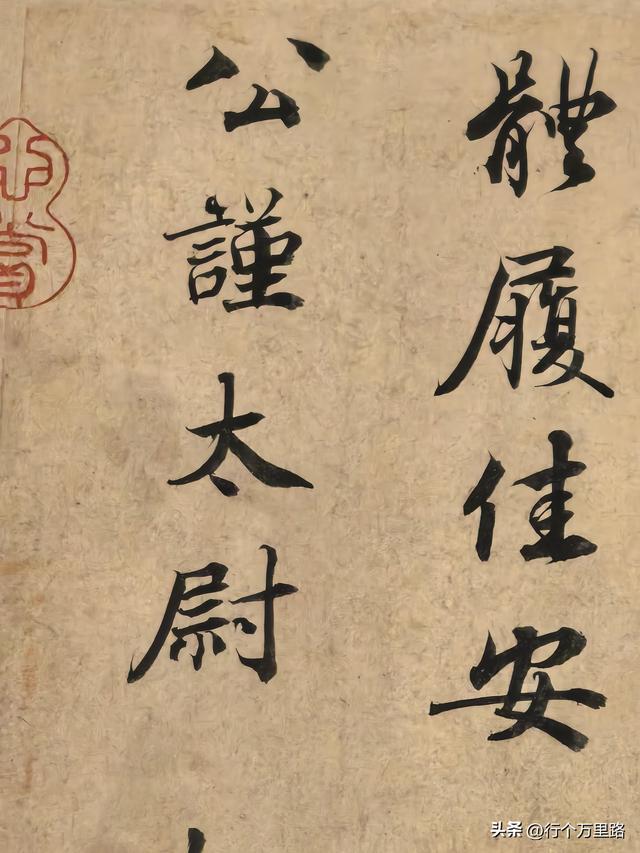 體履佳安
公謹太尉
头条 @行个万里路